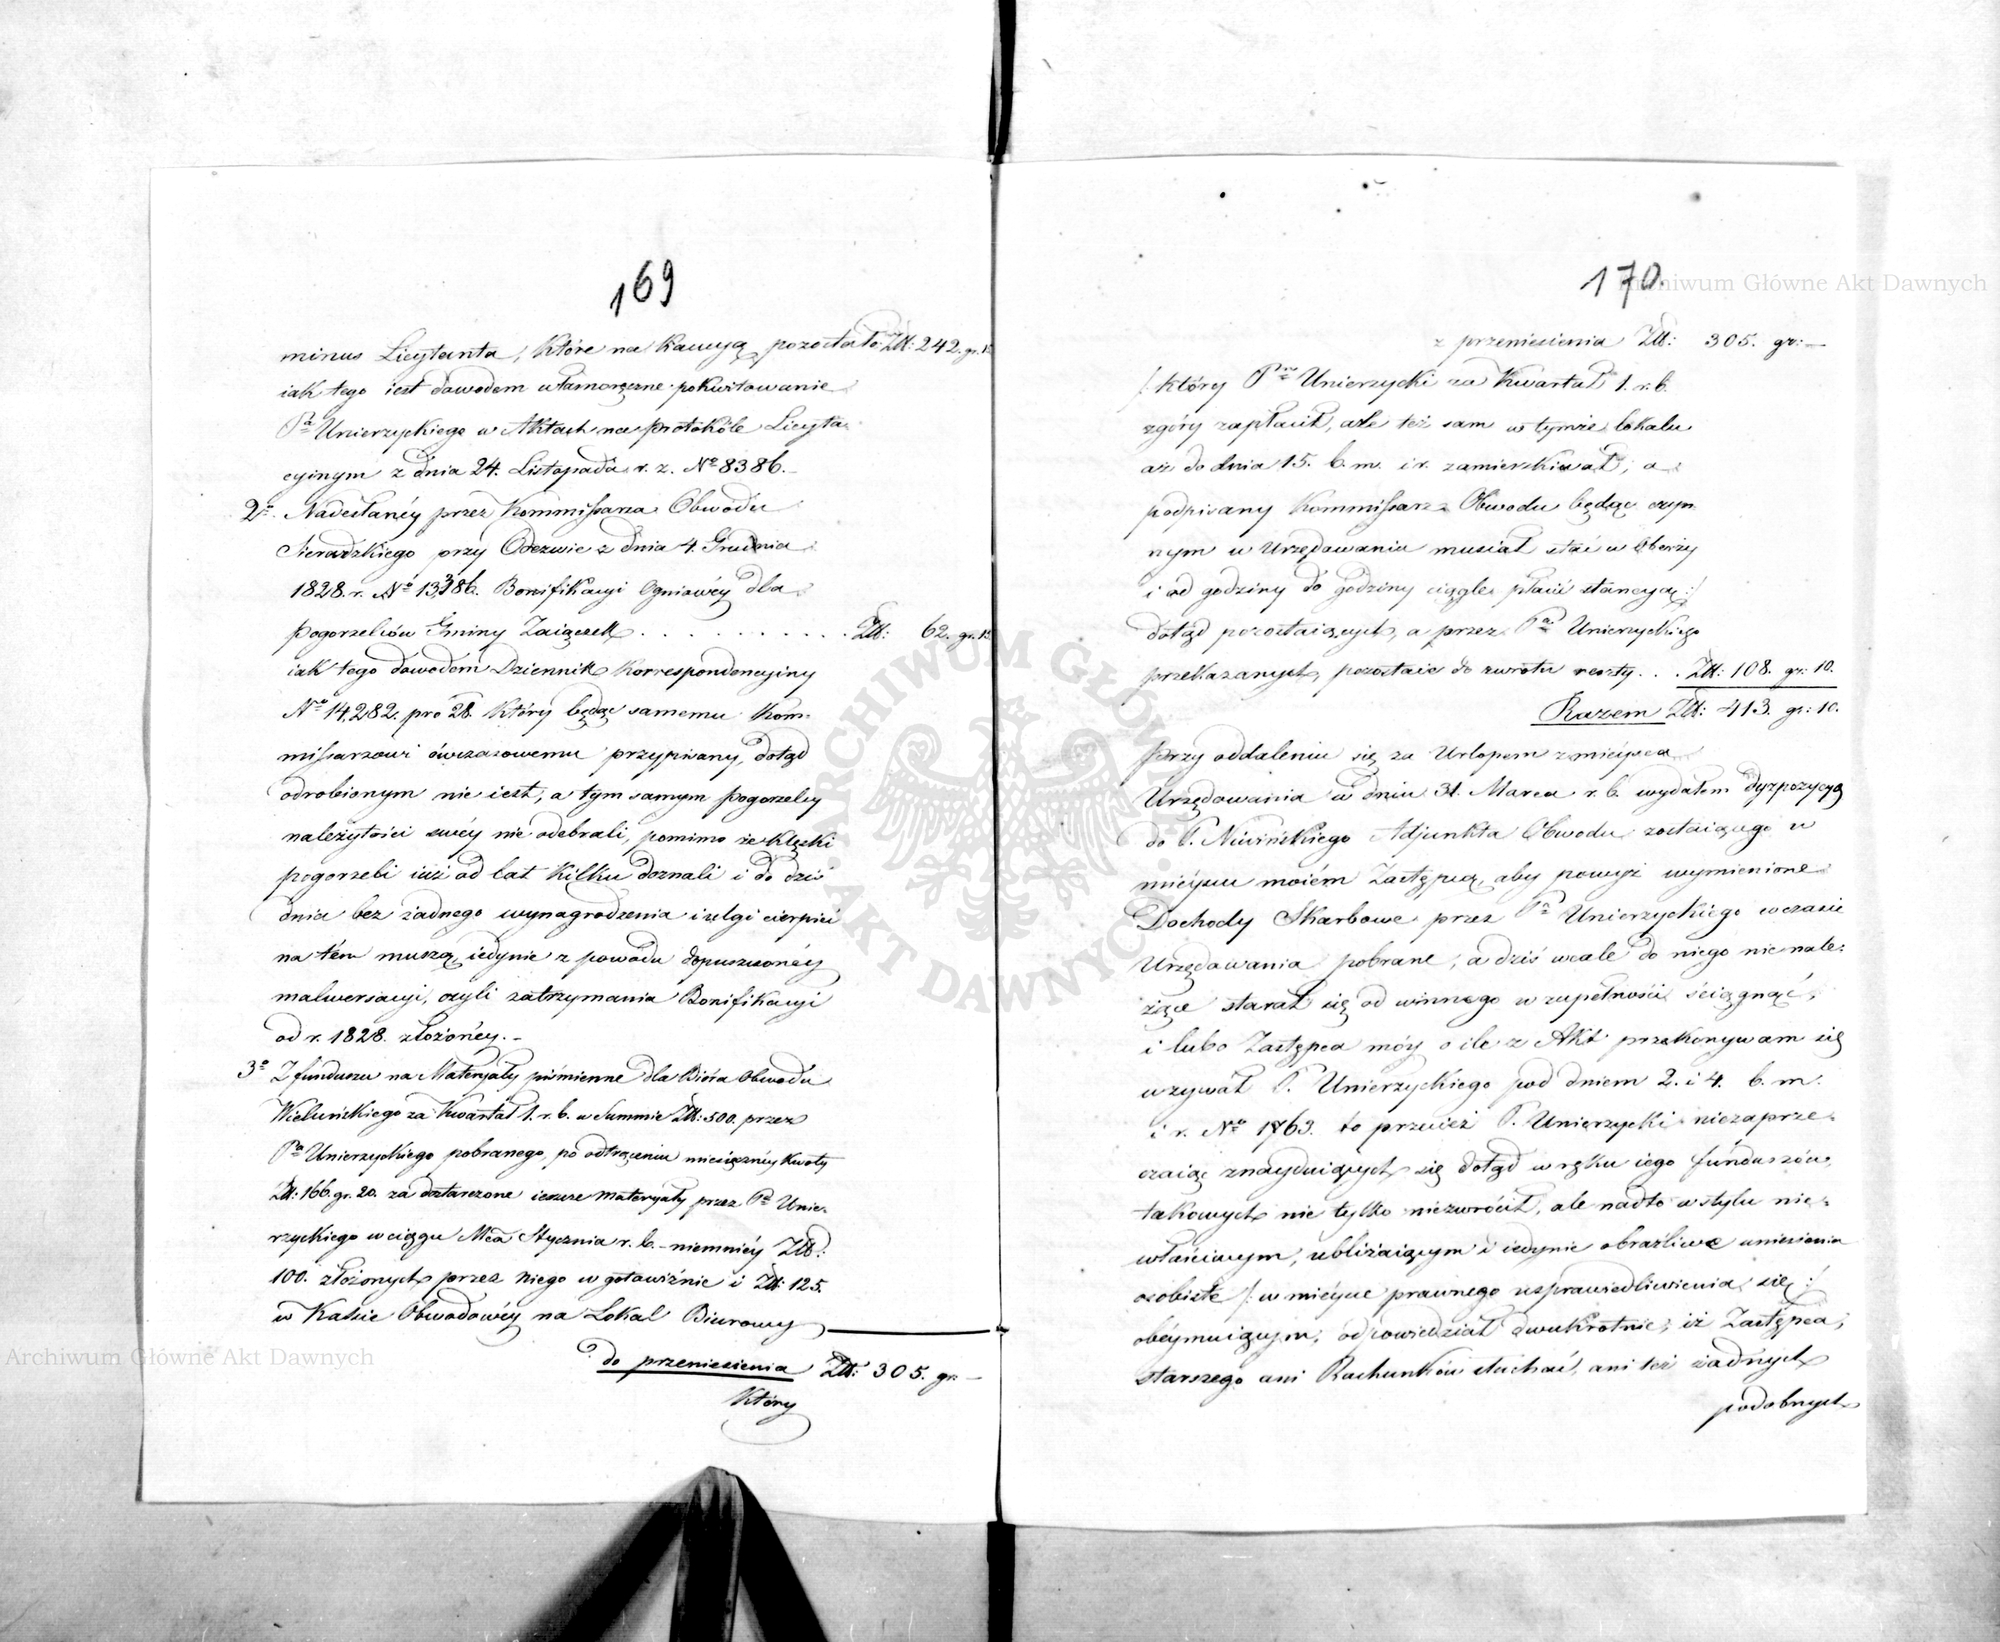 169
minus Licytanta, które na Kaucyą pozostało Złt: 242. gr. 1
iak tego iest dowodem własnoręczne pokwitowanie
Pa Unierzyckiego w Aktach na protokóle Licyta=
cyinym z dnia 24. Listopada r. z. No 8386.
2o. Nadesłanéy przez Kommissarza Obwodu
Sieradzkiego przy Odezwie z dnia 4. Grudnia
1828. r. No Bonifikacyi Ogniowéy dla
pogorzelców Gminy Zaiączek . . . . . . . . . . Złt: 62. gr. 1
iak tego dowodem Dziennik Korrespondencyiny
No 14,282. pro 28. który będąc samemu Kom=
missarzowi ówczasowemu przypisany, dotąd
odrobionym nie iest, a tym samym pogorzelcy
należytości swéy nie odebrali, pomimo że Klęski
pogorzeli iuż od lat Kilku doznali i do dziś
dnia bez żadnego wynagrodzenia i ulgi cierpieć
na tém muszą, iedynie z powodu dopuszczonéy
malwersacyi, czyli zatrzymania Bonifikacyi
od r. 1828. złożonéy. -
3o Z funduszu na Materyały piśmienne dla Bióra Obwodu
Wieluńskiego za Kwartał 1. r. b. w Summie Złt: 500. przez
Pa Unierzyckiego pobranego, po odtrąceniu miesięcznéy Kwoty
Złt: 166. gr. 20. za dostarczone ieszcze materyały przez Pa Unie=
rzyckiego w ciągu Mca Stycznia r. b. - niemniéy Złt:
100. złożonych przez niego w gotowiźnie i Złt: 125.
w Kassie Obwodowéy na Lokal Biurowy
do przeniesienia Złt: 305. gr. -
Który
170.
z przeniesienia Złt: 305. gr: -
/: który Pan Unierzycki za Kwartał 1. r. b.
zgóry zapłacił, ale też sam w tymże lokalu
aż do dnia 15. b. m. i r. zamieszkiwał; a
podpisany Kommissarz Obwodu będąc czyn=
nym w Urzędowaniu musiał stać w Oberży
i od godziny do godziny ciągle płacić stancyą :/
dotąd pozostaiących, a przez Pa Unierzyckiego
przekazanych, pozostaie do zwrotu reszty . . . Złt: 108. gr: 10.
Razem Złt: 413. gr: 10.
Przy oddaleniu się za Urlopem z mieysca
Urzędowania w dniu 31. Marca r. b. wydałem dyspozycyą
do P. Adjunkta Obwodu zostaiącego w
mieyscu moiém Zastępcą, aby powyż wymienione
Dochody Skarbowe przez Pa Unierzyckiego w czasie
Urzędowania pobrane, a dziś wcale do niego nie nale=
żące starał się od winnego w zupełności ściągnąć,
i lubo Zastępca móy o ile z Akt przekonywam się
wzywał P. Unierzyckiego pod dniem 2. i 4. b. m.
i r. No 1763. to przecież P. Unierzycki niezaprze=
czaiąc znayduiących się dotąd w ręku iego funduszów,
takowych nie tylko niezwrócił, ale nadto w stylu nie=
właściwym, ubliżaiącym i iedynie obraźliwe uniesienia
osobiste /: w mieysce prawnego usprawiedliwienia się :/
obeymuiącym, odpowiedział dwukrotnie, iż Zastępca,
starszego ani Rachunków słuchać, ani też żadnych
podobnych
Archiwum Główne Akt Dawnych
Archiwum Główne Akt Dawnych
ARCHIWUM GŁÓWNE AKT DAWNYCH